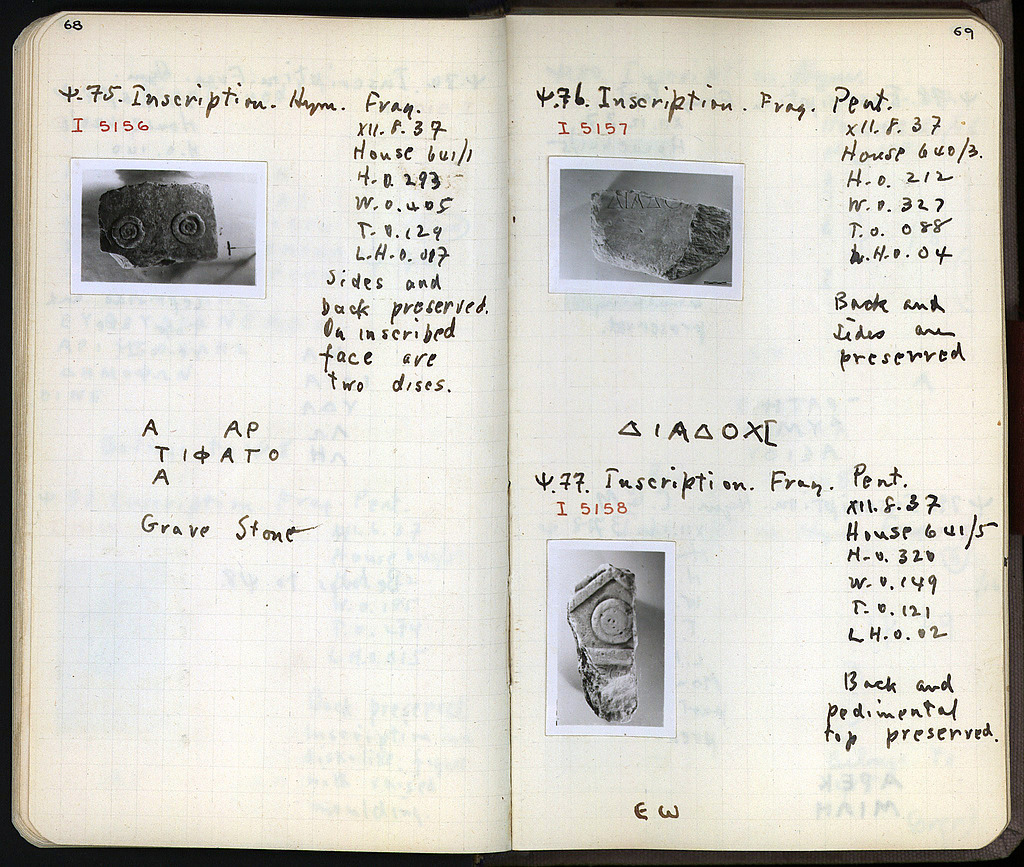 68
Ψ.75. Inscription. Hym. Frag.
I 5156
XII.8.37
House 641/1
H-0.293
W.0.405
T-0.129
L.H-0.007
Sides and
back preserved.
On inscribed
face are
two discs.
Α ΑΡ
ΤΙΦΑΤΟ
Α
Grave Stone
69
Ψ.76. Inscription. Frag. Pent.
I 5157
XII.8.37
House 640/3.
H-0.212
W.0.327
T.0.088
L.H.0.04
Back and
sides are
preserved
ΔΙΑΔΟΧ[
Ψ.77. Inscription. Frag. Pent.
I 5158
XII.8.37
House 641/5
H-0.320
W.0.149
T-0.121
L.H.0.02
Back and
pedimental
top preserved.
Ε Ω